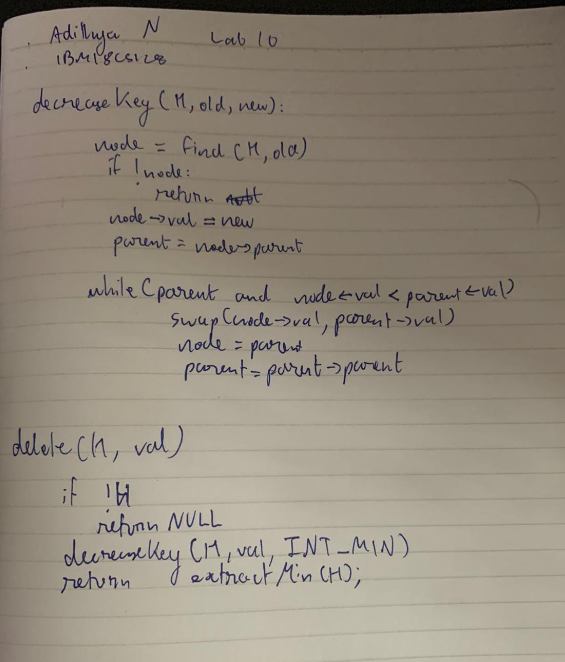 Adithya N Lab 10
1BM18CS128
decreaseKey(H, old, new):
node = find (H, old)
if !node:
return
node->val = new
parent = node->parent
while (parent and node←val < parent←val)
swap(node->val, parent->val)
node = parent
parent = parent->parent
delete(H, val)
if !H
return NULL
decreaseKey (H, val, INT_MIN)
return extractMin(H);